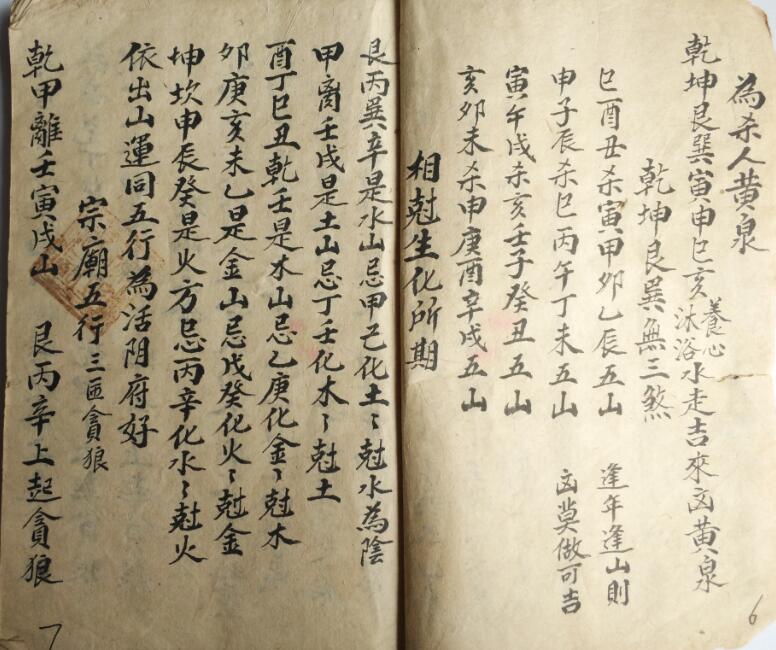 為杀人黄泉
乾坤艮巽寅申巳亥養心沐浴水走吉來凶黄泉
乾坤艮巽無三煞
巳酉丑杀寅甲卯乙辰五山 逢年逢山則
申子辰杀巳丙午丁未五山 凶莫做可吉
寅午戌杀亥壬子癸丑五山
亥卯未杀申庚酉辛戌五山
相尅生化所期
6
艮丙巽辛是水山忌甲己化土〻尅水為陰
甲离壬戌是土山忌丁壬化木〻尅土
酉丁巳丑乾壬是木山忌乙庚化金〻尅木
卯庚亥未乙是金山忌戊癸化火〻尅金
坤坎申辰癸是火方忌丙辛化水〻尅火
依出山運同五行為活阴府好
宗廟五行三匝貪狼
乾甲離壬寅戌山 艮丙辛上起貪狼
7